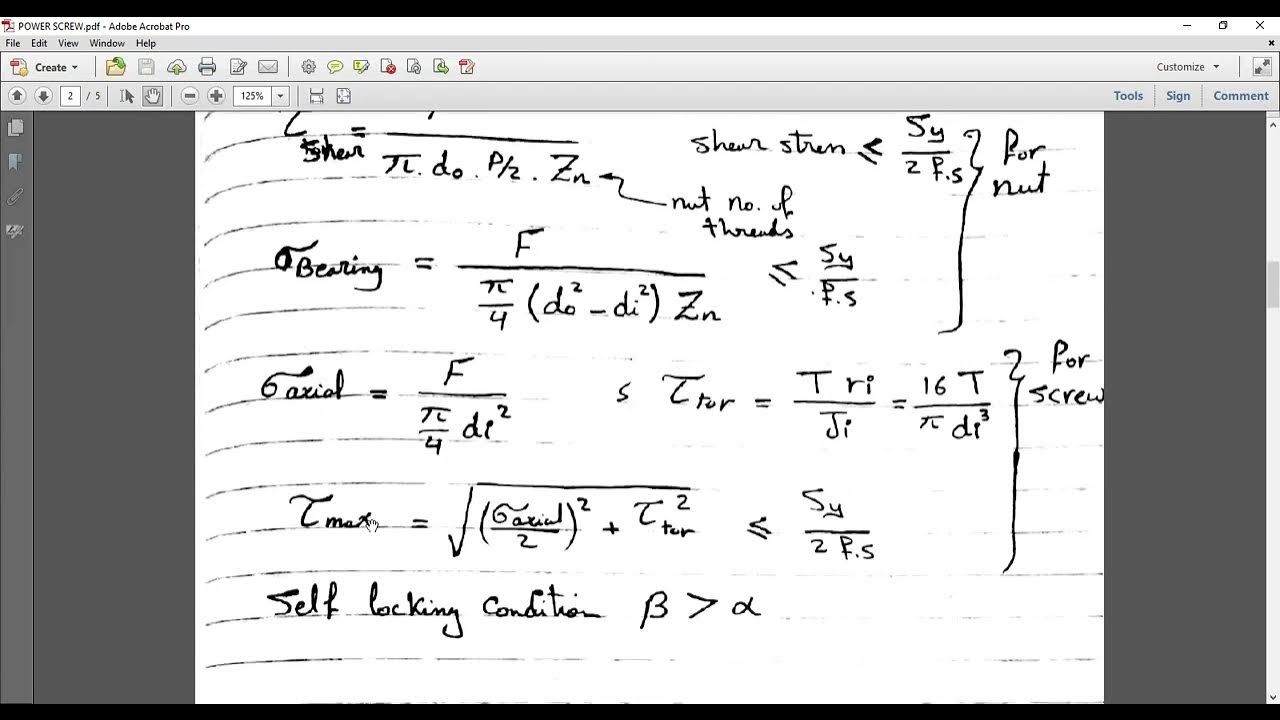 POWER SCREW.pdf - Adobe Acrobat Pro
File Edit View Window Help
Create Customize
2 / 5 125% Tools Sign Comment
τ shear = / π . do . P/2 . Zn shear stren ≤ Sy / 2 f.s } for nut
nut no. of
threads
σ Bearing = F / π/4 (do² - di²) Zn ≤ Sy / f.s
σ axial = F / π/4 di² , τ tor = T ri / Ji = 16 T / π di³ } for screw
τ max = √ (σ axial / 2)² + τ tor² ≤ Sy / 2 f.s
Self locking condition β > α